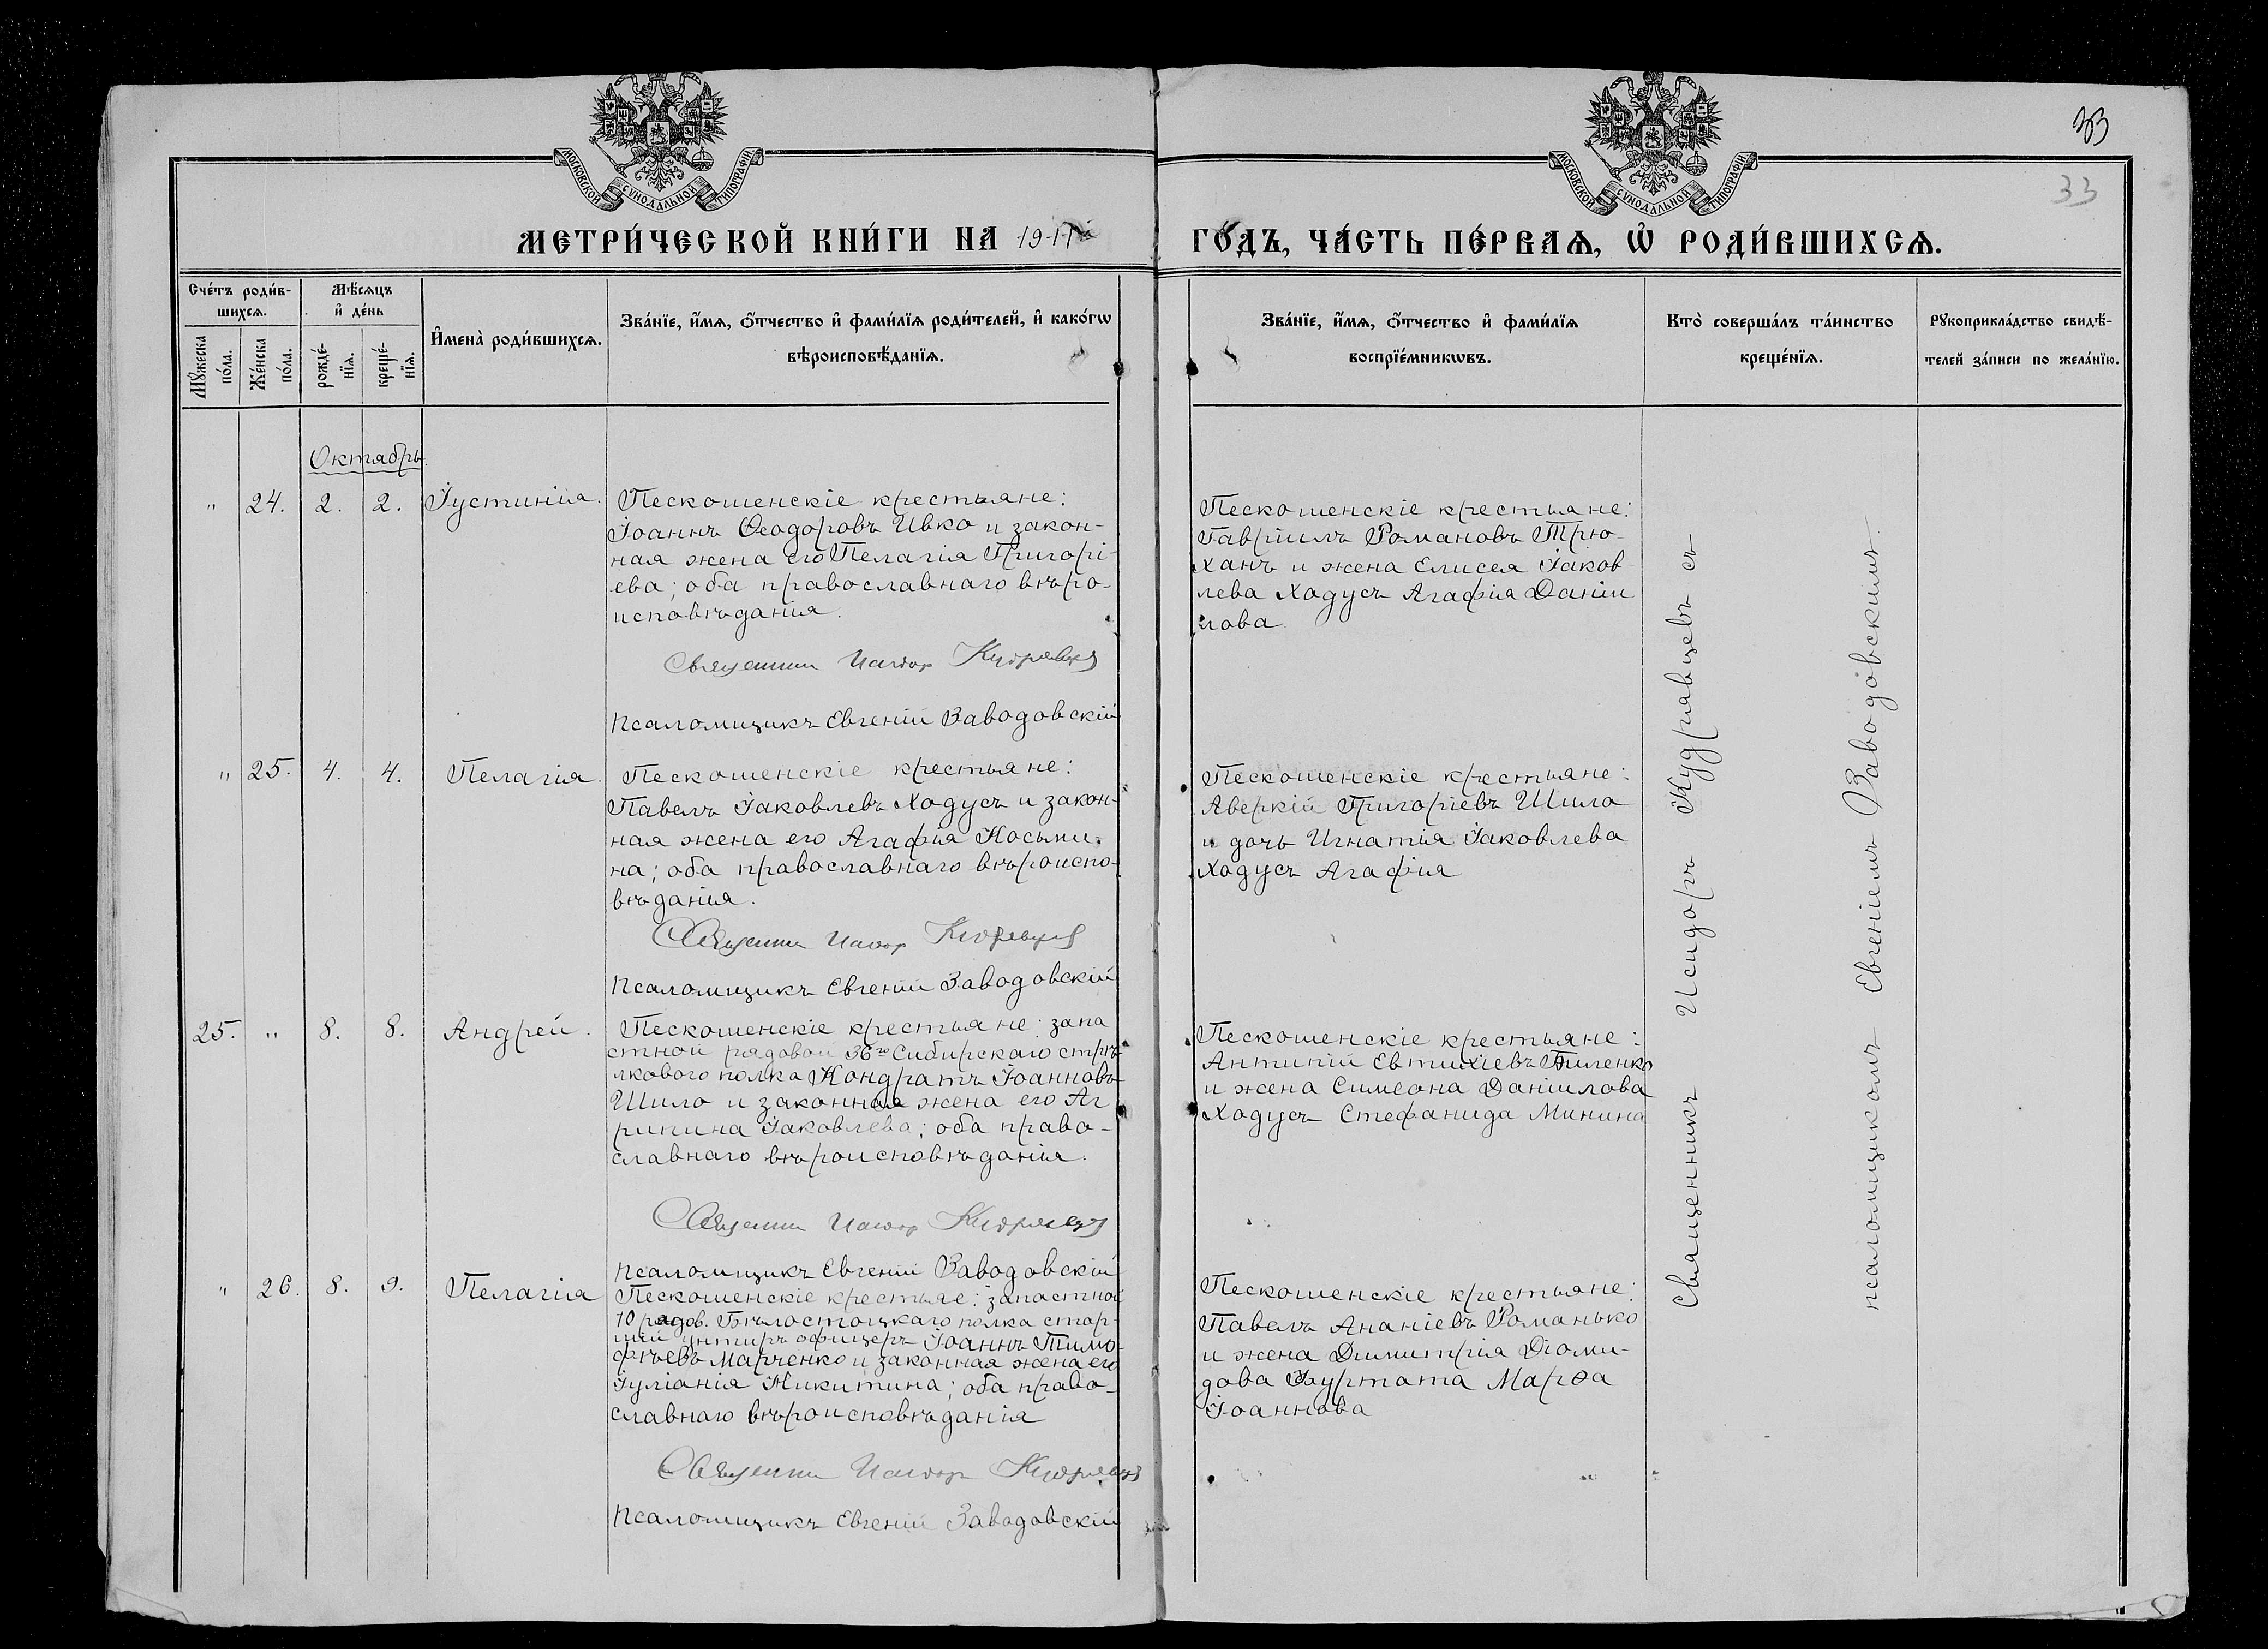 МОСКОВСКОЙ СѴНОДАЛЬНОЙ ТИПОГРАФІИ
МОСКОВСКОЙ СѴНОДАЛЬНОЙ ТИПОГРАФІИ
33
33
МЕТРИ́ЧЕСКОЙ КНИ́ГИ НА 1911й
ГО́ДЪ, ЧА́СТЬ ПЕ́РВАѦ, Ѽ РОДИ́ВШИХСѦ.
Сче́тъ роди́в-
шихсѧ.
Мꙋ́жеска по́ла.
Же́нска по́ла.
Мѣ́сѧцъ
и҆ де́нь
рожде́-нїѧ.
креще́-нїѧ.
И҆мена̀ роди́вшихсѧ.
Зва́нїе, и҆́мѧ, ѻ҆́тчество и҆ фами́лїѧ роди́телей, и҆ како́гѡ
вѣроисповѣ́данїѧ.
Зва́нїе, и҆́мѧ, ѻ҆́тчество и҆ фами́лїѧ
воспрїе́мникѡвъ.
Кто̀ соверша́лъ та́инство
креще́нїѧ.
Рꙋкоприкла́дство свидѣ́-
телей за́писи по жела́нїю.
Октябрь.
" 24. 2. 2. Іустинія.
Пескошенскіе крестьяне:
Іоаннъ Ѳеодоровъ Ивко и закон-
ная жена его Пелагія Григорі-
ева; оба православнаго вѣро-
исповѣданія.
Священник Исидор Кудрявцев
Псаломщикъ Евгеній Заводовскій
Пескошенскіе крестьяне:
Гавріилъ Романовъ Трю-
ханъ и жена Елисея Іаков
лева Ходусъ Агафія Даніи
лова
" 25. 4. 4. Пелагія.
Пескошенскіе крестьяне:
Павелъ Іаковлевъ Ходусъ и закон-
ная жена его Агафія Косьми-
на; оба православнаго вѣроиспо-
вѣданія.
Священник Исидор Кудрявцев
Псаломщикъ Евгеній Заводовскій
Пескошенскіе крестьяне:
Аверкій Григоріевъ Шило
и дочь Игнатія Іаковлева
Ходусъ Агафія
25. " 8. 8. Андрей.
Пескошенскіе крестьяне: запа
стной рядовой 36го Сибирскаго стрѣ-
лковаго полка Кондратъ Іоанновъ
Шило и законная жена его Аг
рипина Іаковлева; оба право-
славнаго вѣроисповѣданія.
Священник Исидор Кудрявцев
Псаломщикъ Евгеній Заводовскій
Пескошенскіе крестьяне:
Антипій Евтихіевъ Пиленко
и жена Симеона Даніилова
Ходусъ Стефанида Минина
" 26. 8. 9. Пелагія
Пескошенскіе крестьяе: запастной
10 рядов. Бѣлостоцкаго полка стар-
шій унтиръ офицеръ Іоаннъ Тимо-
фѣевъ Марченко и законная жена его
Іуліанія Никитина; оба право-
славнаго вѣроисповѣданія
Священник Исидор Кудрявцев
Псаломщикъ Евгеній Заводовскій
Пескошенскіе крестьяне:
Павелъ Ананіевъ Романько
и жена Димитрія Діоми-
дова Марѳа
Іоаннова
Священникъ Исидоръ Кудрявцевъ съ
псаломщикомъ Евгеніемъ Заводовскимъ